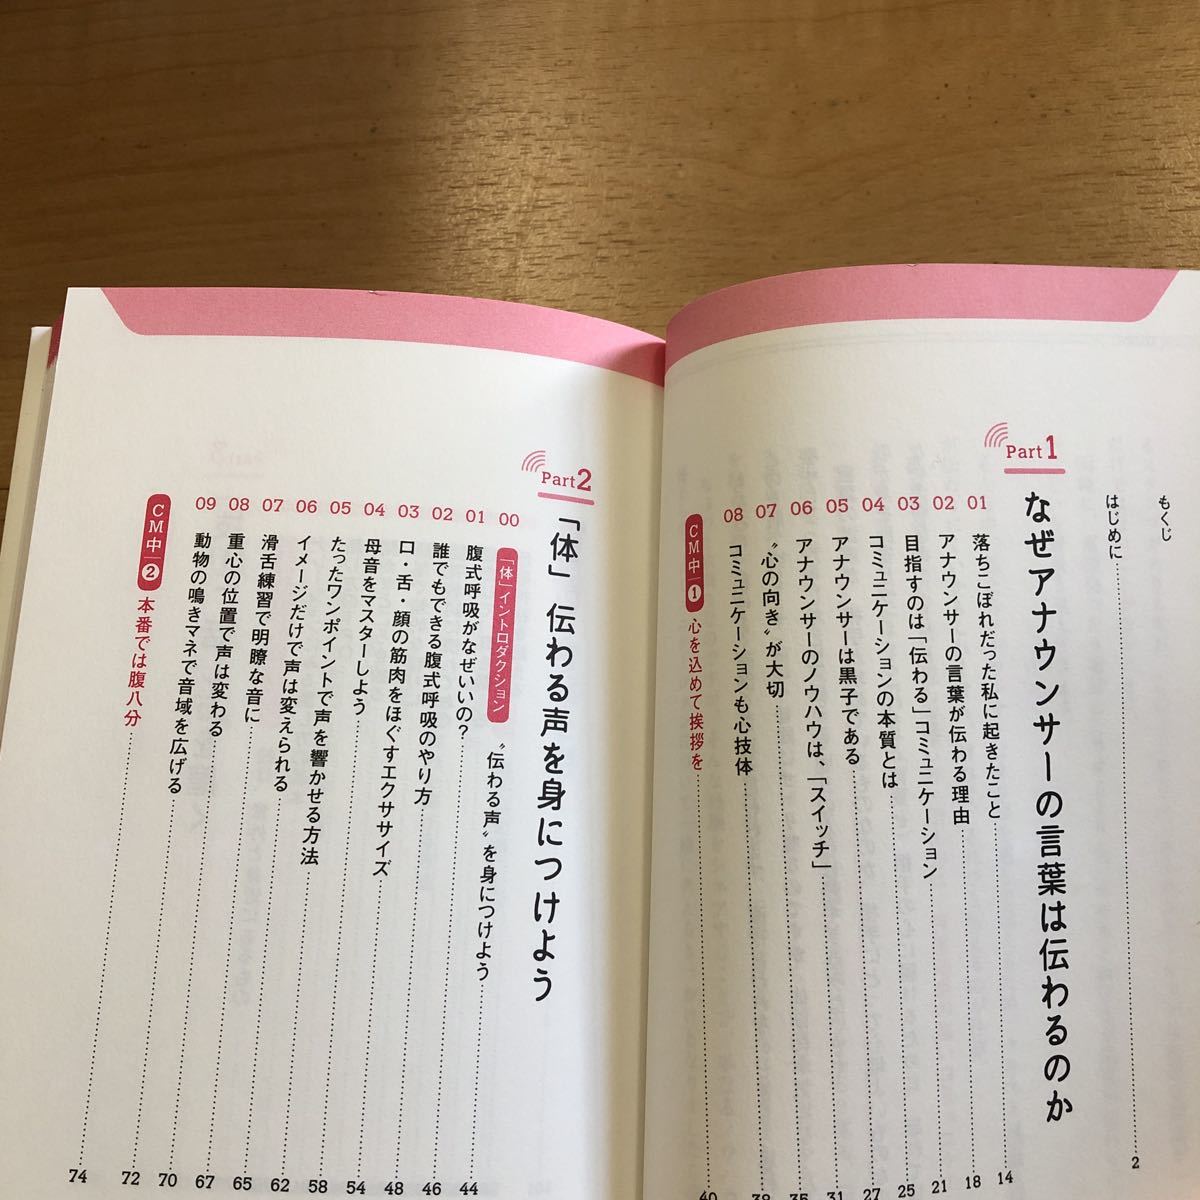 もくじ
はじめに 2
Part1
なぜアナウンサーの言葉は伝わるのか
01 落ちこぼれだった私に起きたこと 14
02 アナウンサーの言葉が伝わる理由 18
03 目指すのは「伝わる」コミュニケーション 21
04 コミュニケーションの本質とは 25
05 アナウンサーは黒子である 27
06 アナウンサーのノウハウは、「スイッチ」 31
07 〝心の向き〟が大切 35
08 コミュニケーションも心技体 38
CM中❶ 心を込めて挨拶を 40
Part2
「体」伝わる声を身につけよう
00 「体」イントロダクション 〝伝わる声〟を身につけよう 44
01 腹式呼吸がなぜいいの？ 46
02 誰でもできる腹式呼吸のやり方 48
03 口・舌・顔の筋肉をほぐすエクササイズ 54
04 母音をマスターしよう 58
05 たったワンポイントで声を響かせる方法 62
06 イメージだけで声は変えられる 65
07 滑舌練習で明瞭な音に 67
08 重心の位置で声は変わる 70
09 動物の鳴きマネで音域を広げる 72
CM中❷ 本番では腹八分 74